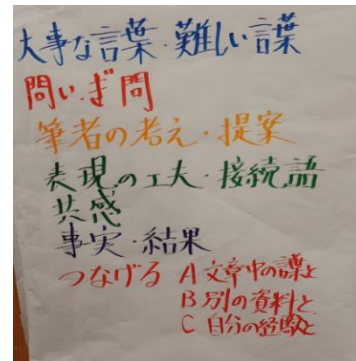 大事な言葉・難しい言葉
問い・ぎ問
筆者の考え・提案
表現の工夫・接続語
共感
事実・結果
つなげる A 文章中の言葉と
B 別の資料と
C 自分の経験と